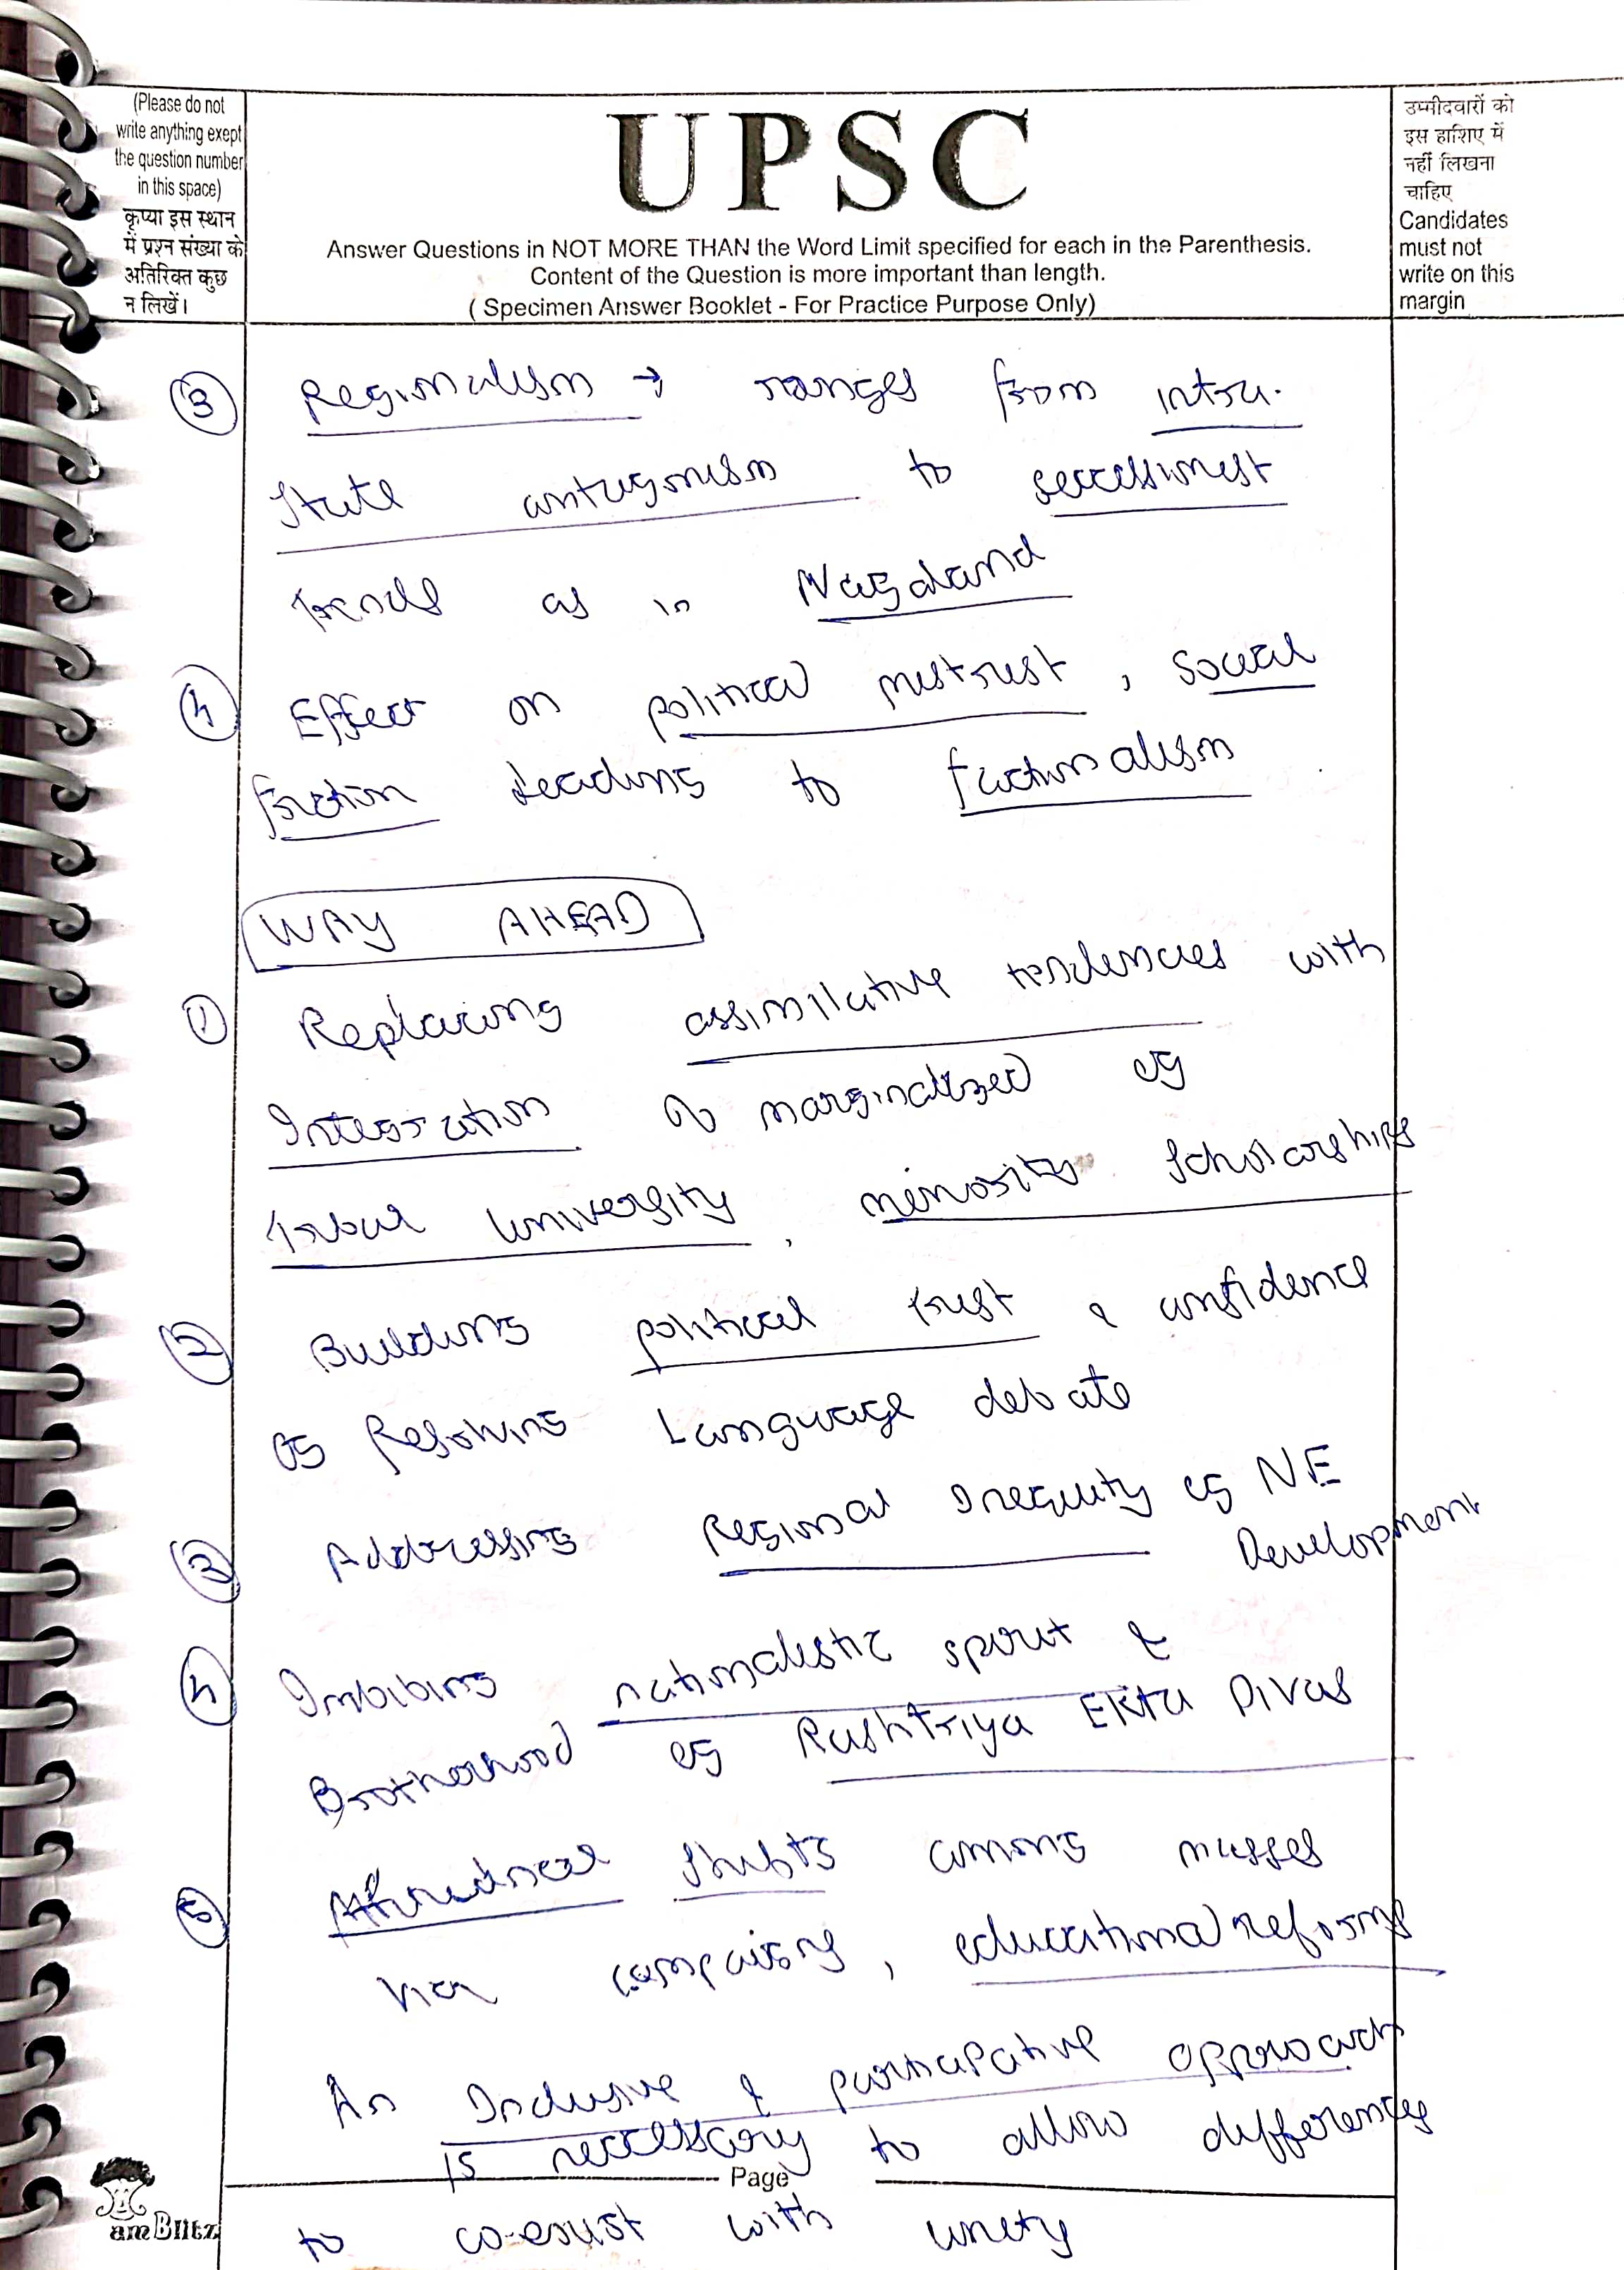 (Please do not
write anything exept
the question number
in this space)
कृप्या इस स्थान
में प्रश्न संख्या के
अतिरिक्त कुछ
न लिखें।
UPSC
Answer Questions in NOT MORE THAN the Word Limit specified for each in the Parenthesis.
Content of the Question is more important than length.
( Specimen Answer Booklet - For Practice Purpose Only)
उम्मीदवारों को
इस हाशिए में
नहीं लिखना
चाहिए
Candidates
must not
write on this
margin
3 Regionalism → ranges from intra-
state antagonism to secessionist
trends as in Nagaland
4 Effect on political mistrust, social
friction leading to factionalism
WAY AHEAD
1 Replacing assimilative tendencies with
Integration of marginalized eg
tribal university, minority scholarships
2 Building political trust & confidence
eg Resolving Language debate
3 Addressing Regional Inequity eg NE
Development
4 Imbibing nationalistic spirit &
Brotherhood eg Rashtriya Ekta Divas
5 Attitudinal shifts among masses
via campaigns, educational reforms
An Inclusive & participative approach
is necessary to allow differences
Page
to co-exist with unity
am Blitz